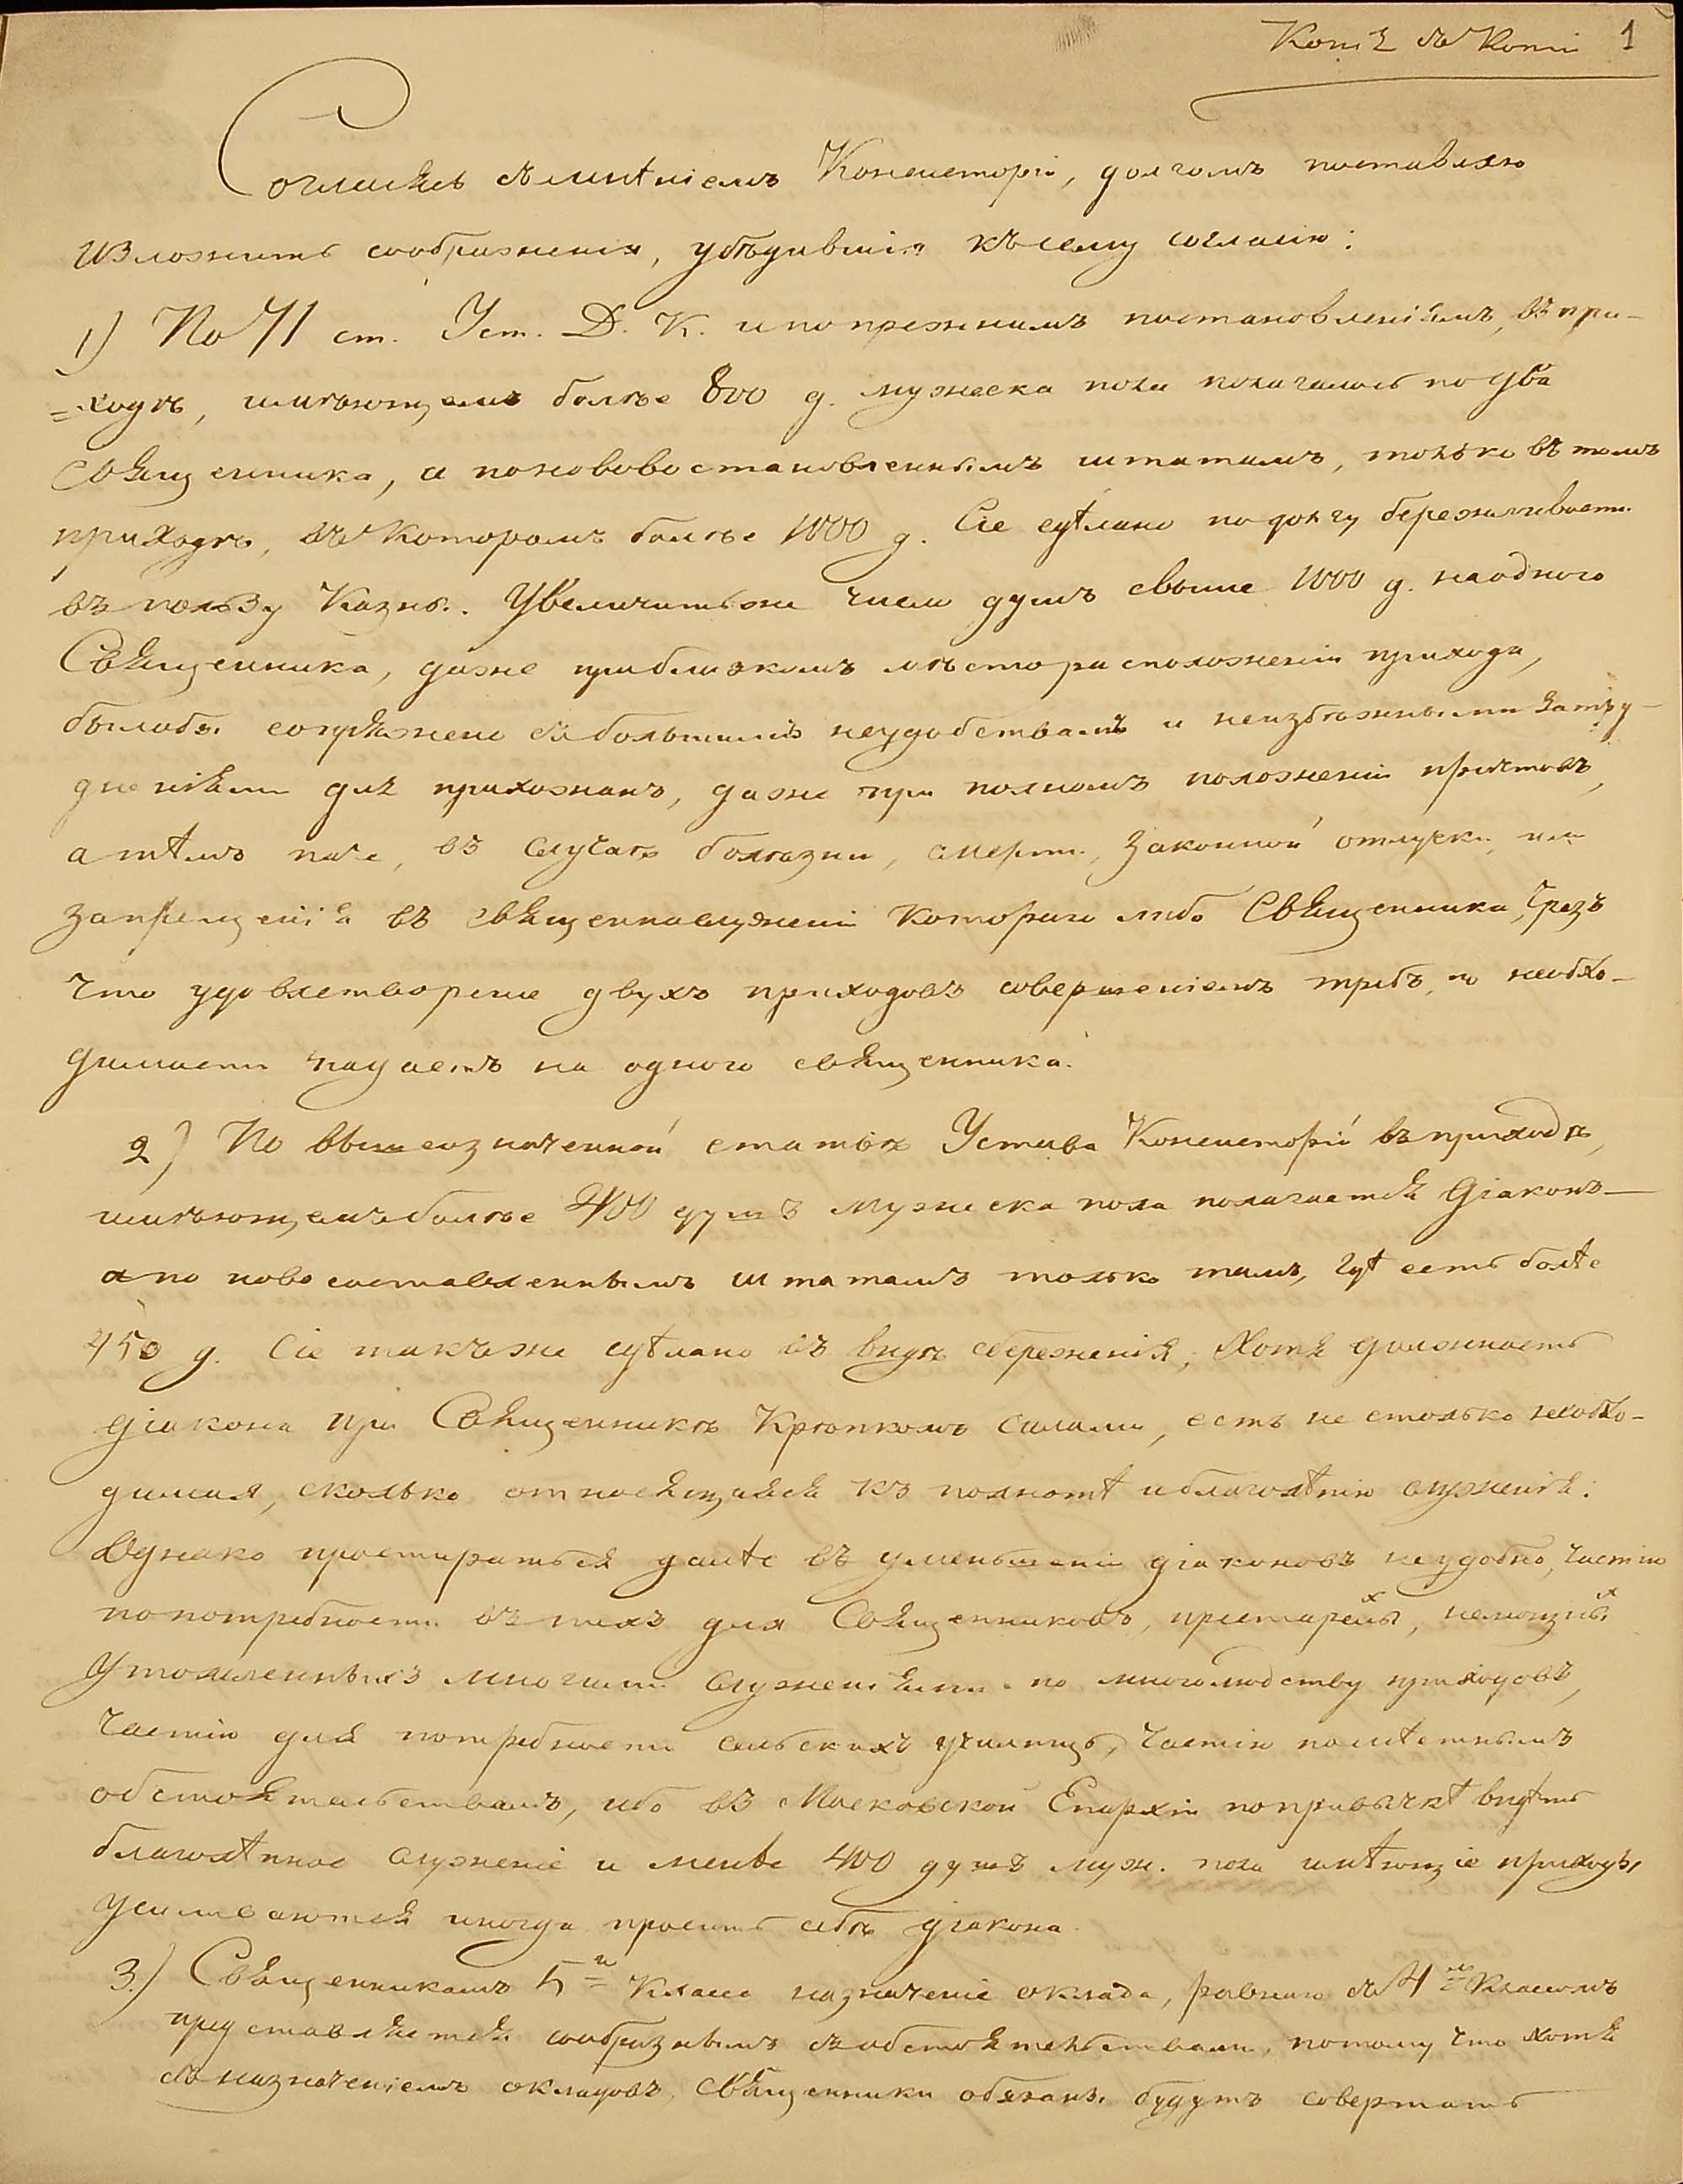 Копія съ Копіи 1
Согласясь съ мнѣніемъ Консисторіи, долгомъ поставляю
изложить соображенія, убѣдившія къ сему согласію:
1) По 71 ст. Уст. Д. К. и по прежнимъ постановленіямъ, въ при-
=ходѣ, имѣющемъ болѣе 800 д. мужеска пола полагалось по два
Священника, а по нововостановленнымъ штатамъ, только въ томъ
приходѣ, въ которомъ болѣе 1000 д. Сіе сдѣлано по долгу бережливости
въ пользу Казны. Увеличить же число душъ свыше 1000 д. на одного
Священника, даже при близкомъ мѣсторасположеніи прихода,
было бы сопряжено съ большимъ неудобствамъ и неизбѣжными затру-
дненіями для прихожанъ, даже при полномъ положеніи причтовъ,
а тѣмъ паче, въ случаѣ болѣзни, смерти, законной отлучки, или
запрещенія въ священнослуженіи котораго либо Священника, чрезъ
что удовлетвореніе двухъ приходовъ совершеніемъ требъ, по необхо-
димости падаетъ на одного священника.
2) По вышеозначенной статьѣ Устава Консисторіи въ приходѣ,
имѣющемъ болѣе 400 душъ мужеска пола полагается Діаконъ —
а по новосоставленнымъ штатамъ только тамъ, гдѣ есть болѣе
450 д. Сіе такъже сдѣлано въ видѣ сбереженія; Хотя должность
діакона при Священникѣ крѣпкомъ силами, есть не столько необхо-
димая, сколько относящаяся къ полнотѣ и благолѣпію служенія.
Однако простираться далѣе въ уменьшеніи діаконовъ неудобно, частію
по потребности въ тѣхъ для Священниковъ, престарѣлыхъ, немощныхъ
утомленныхъ многими служеніями по многолюдству приходовъ,
частію для потребности сельскихъ училищъ, частію по мѣстнымъ
обстоятельствамъ, ибо въ Московской Епархіи по привычкѣ видѣть
благолѣпное служеніе и менѣе 400 душъ муж. пола имѣющіе приходы,
усиливаются иногда просить себѣ діакона.
3.) Священникамъ 5=го класса назначеніе оклада, равнаго съ 4=мъ классомъ
представляется сообразнымъ съ обстоятельствами, потому что хотя
съ назначеніемъ окладовъ, священники обязаны будутъ совершать